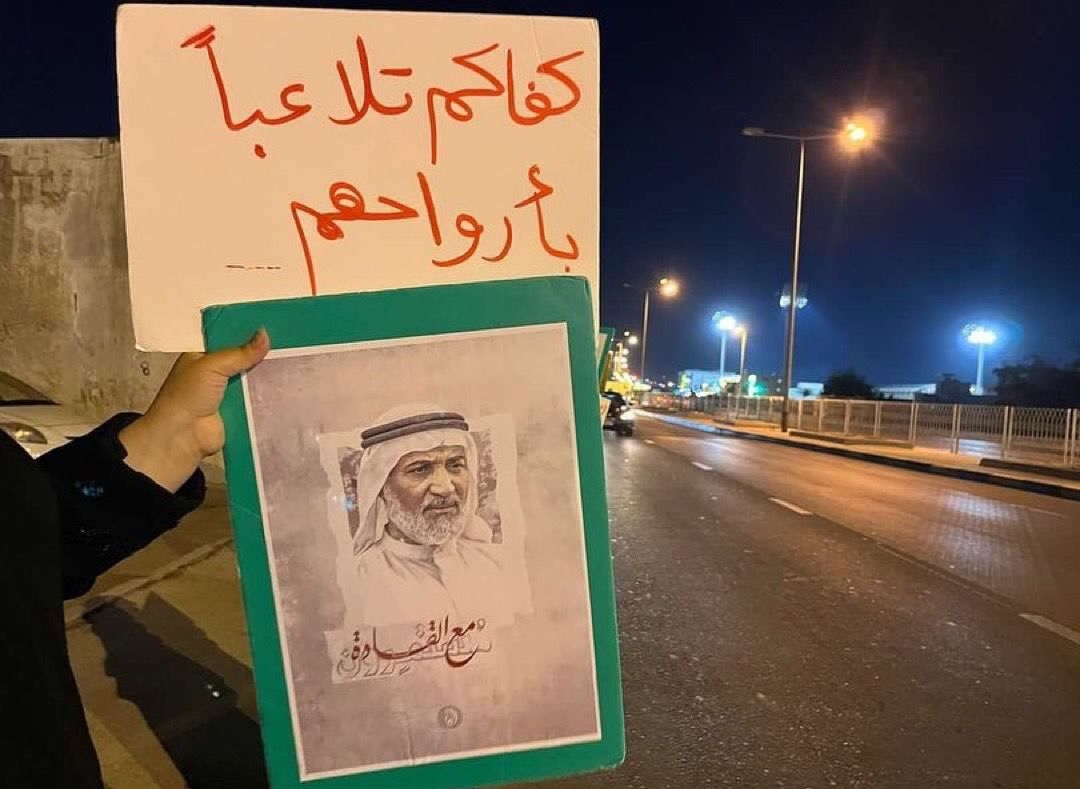 كفاكم تلاعباً
بأرواحهم ....
مع القادة